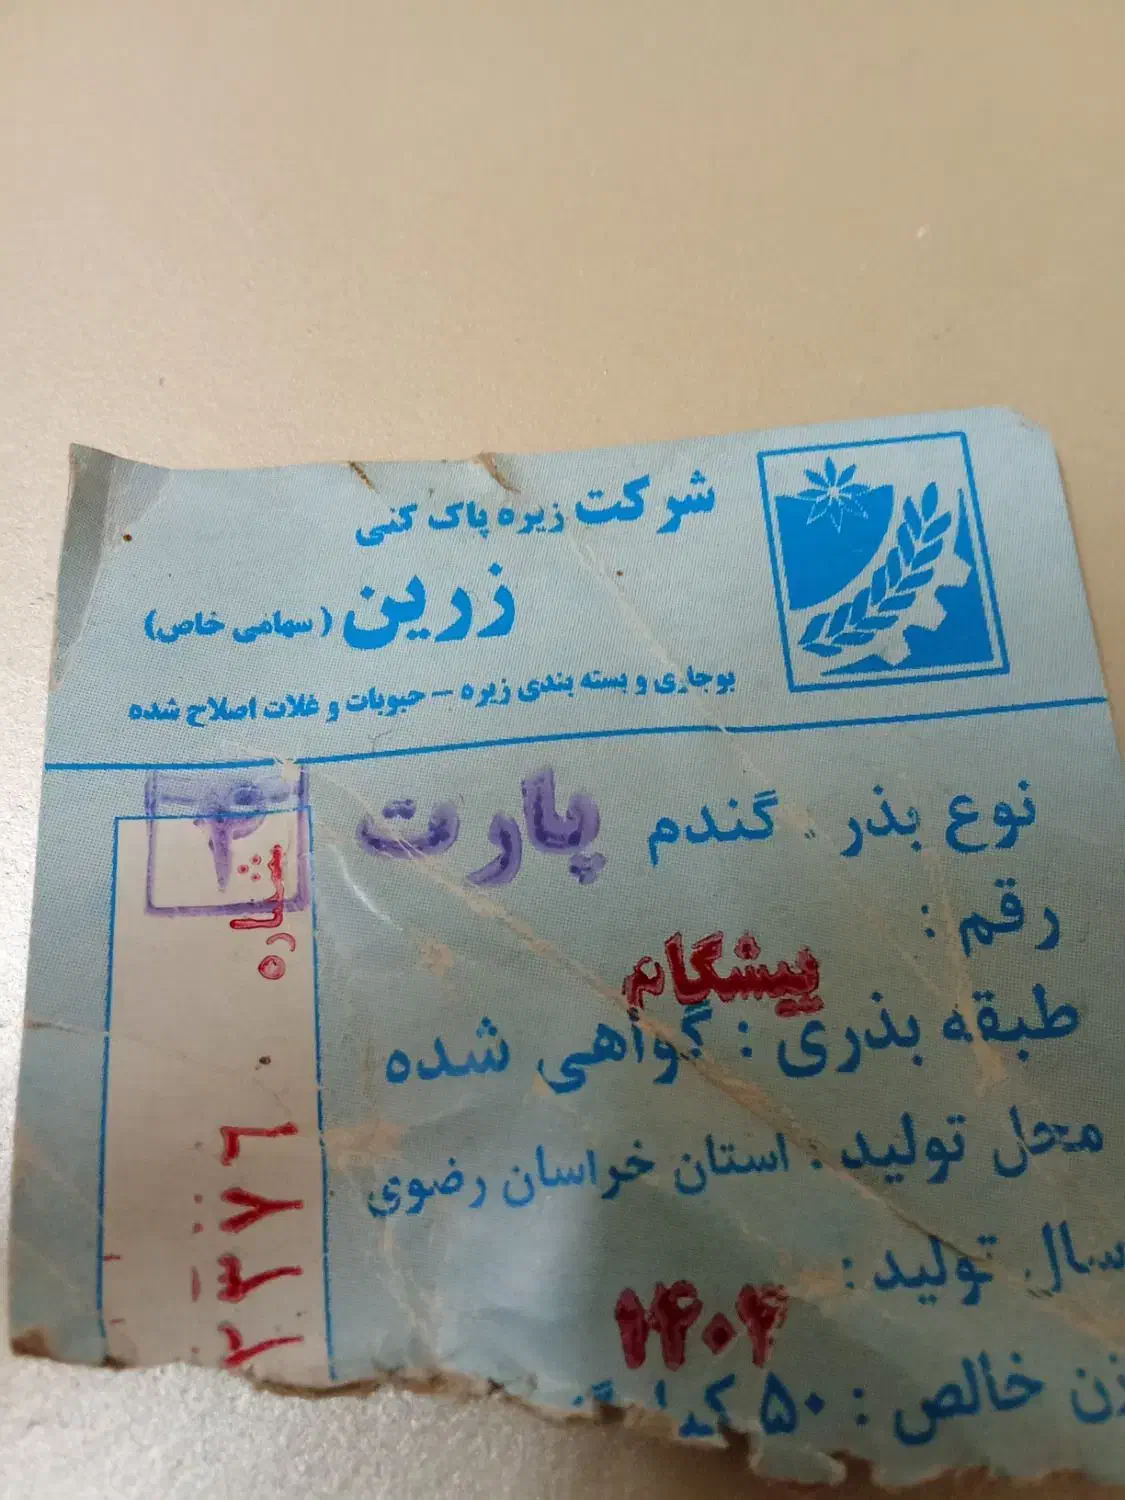 شرکت زیره پاک کنی
زرین (سهامی خاص)
بوجاری و بسته بندی زیره - حبوبات و غلات اصلاح شده
نوع بذر : گندم پارت ۴
رقم : پیشگام
طبقه بذری : گواهی شده
محل تولید : استان خراسان رضوی
سال تولید : ۱۴۰۴
خالص : ۵۰
شماره ۲۳۷۶